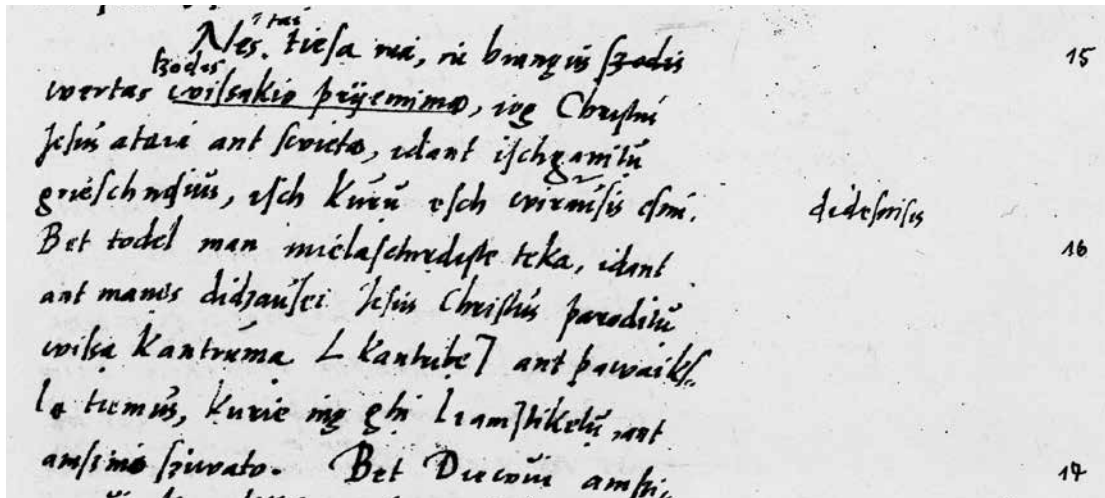 ta̗i
Nes. tiesa rai, ir brangus szodis 15
szodis
wertas wissakio priijemimo, iog Christus
Jesus ataia ant swieto, idant ischganitu
grieschnosius, isch kuru esch wirausis esmi. didesnisis
Bet todel man mielaschirdiste teka, idant 16
ant manes didzausei Jesus Christus paroditu
wisa kantruma [kantribe] ant pawaiks-
lo tiemus, kurie ing ghi
amszino sziwato. Bet 17